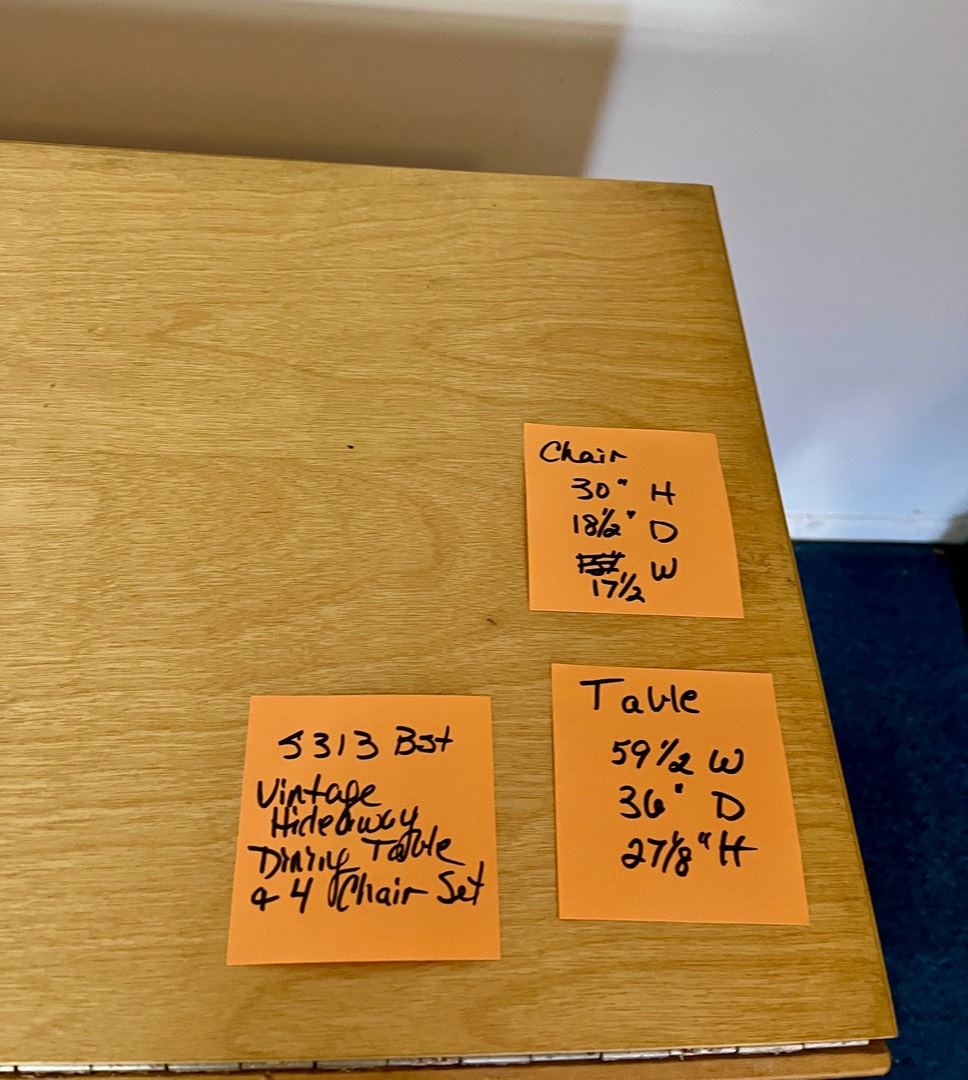 Chair
30" H
18 1/2" D
W
17 1/2
Table
59 1/2 W
36" D
27 1/8" H
5313 Bst
Vintage
Hideaway
Dining Table
& 4 Chair Set